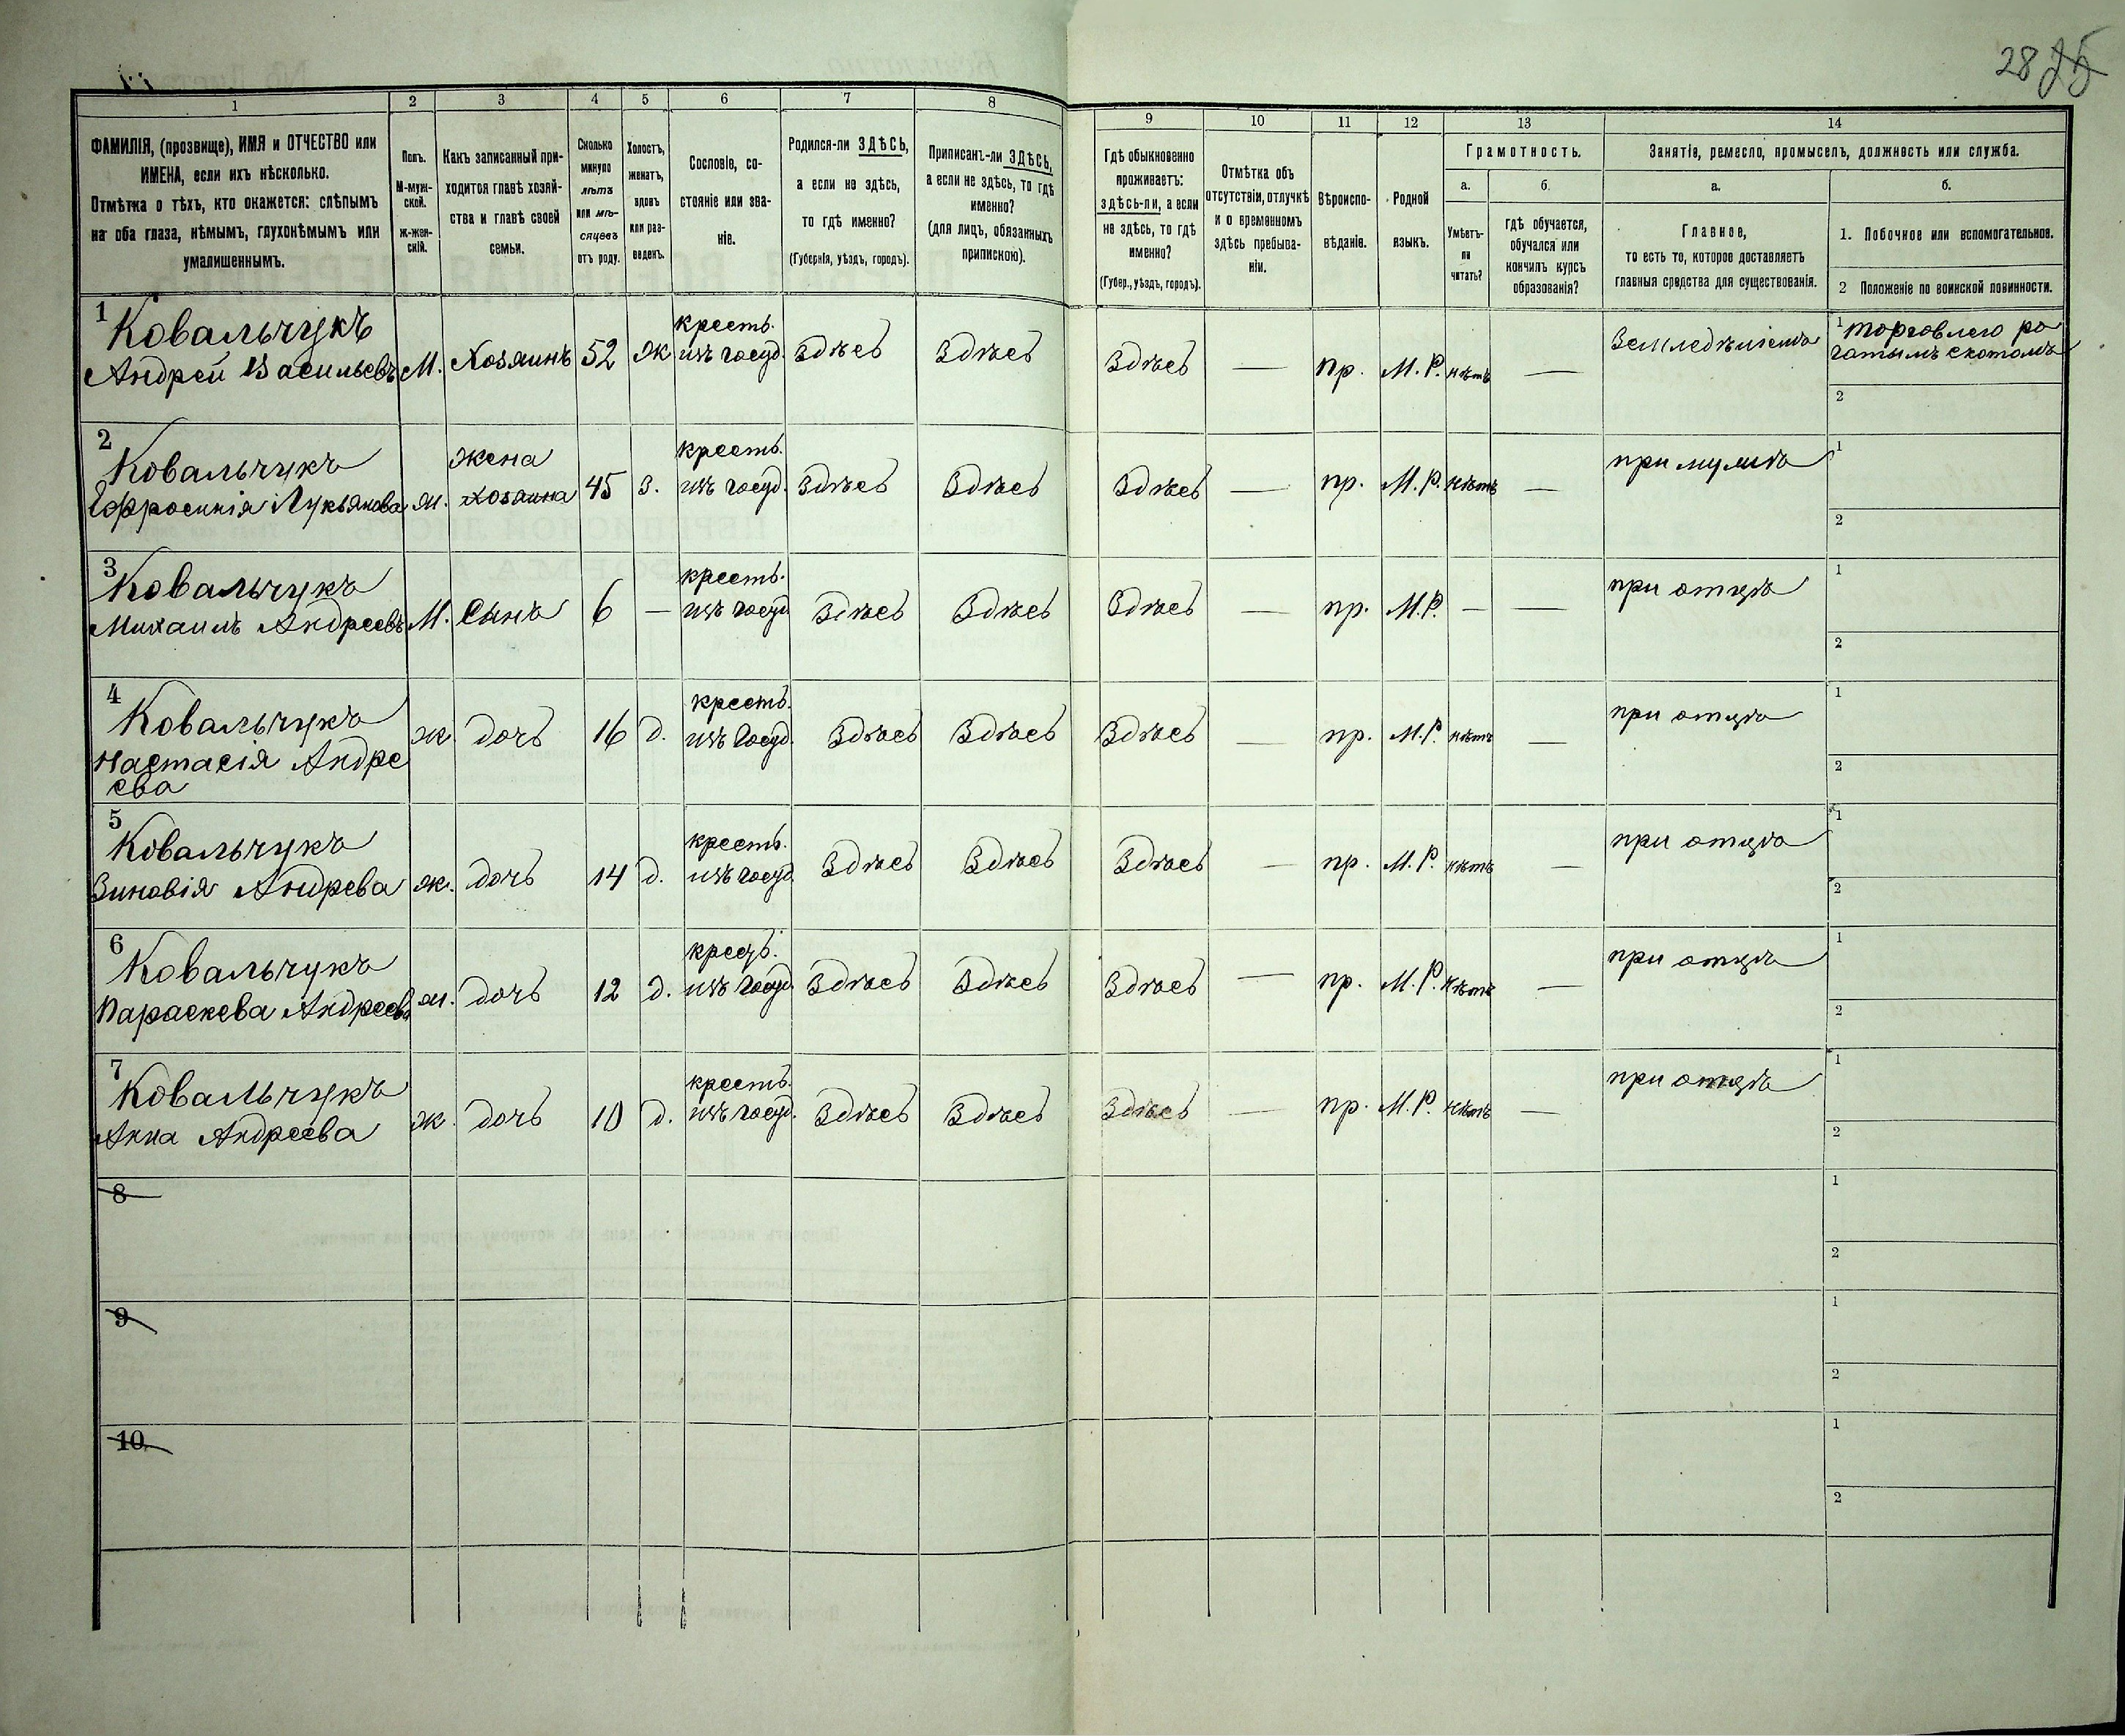 28 25
1 2 3 4 5 6 7 8 9 10 11 12 13 14
ФАМИЛІЯ, (прозвище), ИМЯ и ОТЧЕСТВО или
ИМЕНА, если ихъ нѣсколько.
Отмѣтка о тѣхъ, кто окажется: слѣпымъ
на оба глаза, нѣмымъ, глухонѣмымъ или
умалишеннымъ.
Полъ.
М-муж-
ской.
ж-жен-
скій.
Какъ записанный при-
ходится главѣ хозяй-
ства и главѣ своей
семьи.
Сколько
минуло
лѣтъ
или мѣ-
сяцевъ
отъ роду.
Холостъ,
женатъ,
вдовъ
или раз-
веденъ.
Сословіе, со-
стояніе или зва-
ніе.
Родился-ли ЗДѢСЬ,
а если не здѣсь,
то гдѣ именно?
(Губернія, уѣздъ, городъ).
Приписанъ-ли ЗДѢСЬ,
а если не здѣсь, то гдѣ
именно?
(для лицъ, обязанныхъ
припискою).
Гдѣ обыкновенно
проживаетъ:
здѣсь-ли, а если
не здѣсь, то гдѣ
именно?
(Губер., уѣздъ, городъ).
Отмѣтка объ
отсутствіи, отлучкѣ
и о временномъ
здѣсь пребыва-
ніи.
Вѣроиспо-
вѣданіе.
Родной
языкъ.
Грамотность.
а.
Умѣетъ-
ли
читать?
б.
гдѣ обучается,
обучался или
кончилъ курсъ
образованія?
Занятіе, ремесло, промыселъ, должность или служба.
а.
Главное,
то есть то, которое доставляетъ
главныя средства для существованія.
б.
1. Побочное или вспомогательное.
2 Положеніе по воинской повинности.
1
Ковальчукъ
Андрей Васильевъ
М. Хозяинъ 52 Ж
кресть.
изъ госуд.
Здѣсь Здѣсь Здѣсь — пр. М.Р. нѣтъ —
Земледѣліемъ
1 торговлею ро
гатымъ скотомъ
2
2
Ковальчукъ
Ефросинія Лукьянова
ж.
жена
хозяина
45 З.
кресть.
изъ госуд.
Здѣсь Здѣсь Здѣсь — пр. М.Р. нѣтъ —
при мужѣ
1
2
3
Ковальчукъ
Михаилъ Андреевъ
М. Сынъ 6 —
кресть.
изъ госуд
Здѣсь Здѣсь Здѣсь — пр. М.Р. — —
при отцѣ
1
2
4
Ковальчукъ
Настасія Андре
ева
ж. дочь 16 д.
кресть.
изъ госуд.
Здѣсь Здѣсь Здѣсь — пр. М.Р. нѣтъ —
при отцѣ
1
2
5
Ковальчукъ
Зиновія Андрева
ж. дочь 14 д.
кресть.
изъ госуд
Здѣсь Здѣсь Здѣсь — пр. М.Р. нѣтъ —
при отцѣ
1
2
6
Ковальчукъ
Параскева Андреева
ж. дочь 12 д.
кресть.
изъ госуд
Здѣсь Здѣсь Здѣсь — пр. М.Р. нѣтъ —
при отцѣ
1
2
7
Ковальчукъ
Анна Андреева
ж. дочь 10 д.
кресть.
изъ госуд.
Здѣсь Здѣсь Здѣсь — пр. М.Р. нѣтъ —
при отцѣ
1
2
8
1
2
9
1
2
10.
1
2